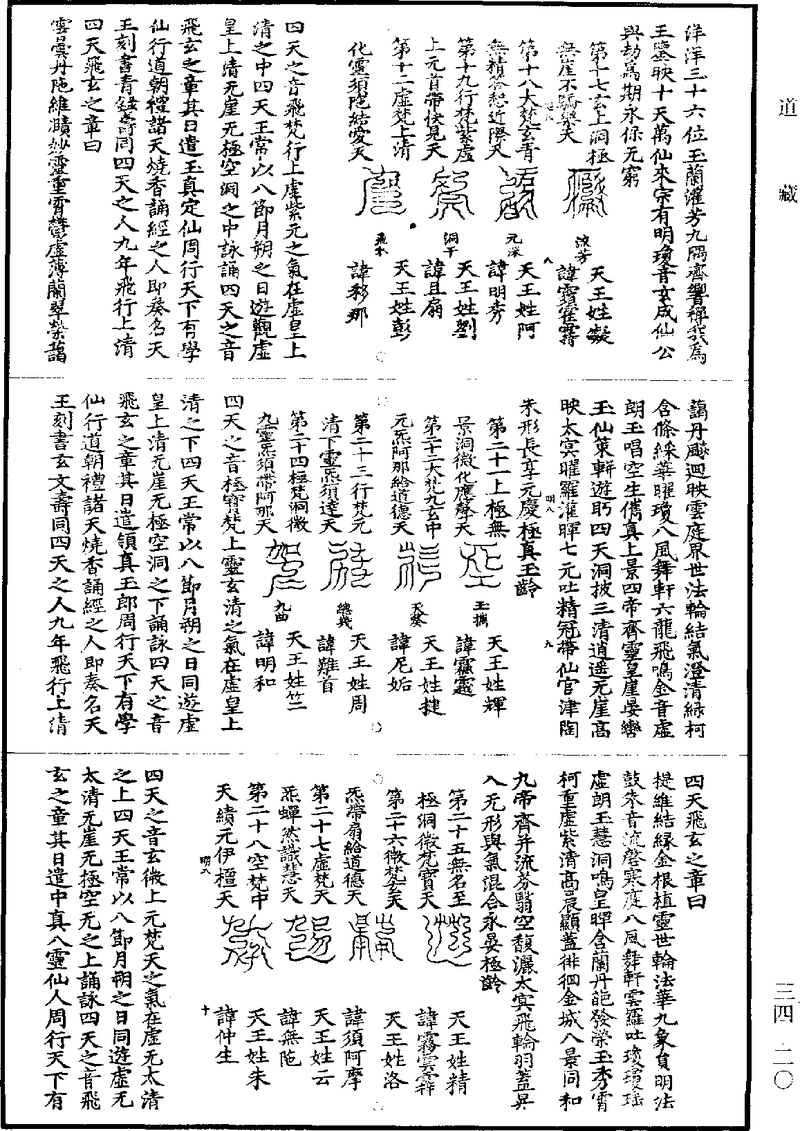 道藏
洋洋三十六位玉蘭濯芳九隅齊響稱我為
王鑒映十天萬仙來宗有明瓊音玄成仙公
與劫為期永保无窮
第十七玄上洞極
無崖不驕樂天
流芳
天王姓凝
諱寶霍霄
第十八大梵玄青
無積答恕近際天
元深
天王姓阿
諱明秀
八
第十九行梵紫虛
上元首帶快見天
洞干
天王姓劉
諱且扇
第十二虛梵上清
化靈須陁結愛天
天王姓彭
諱移那
四天之音飛梵行上虛紫元之氣在虛皇上
清之中四天王常以八節月朔之日遊觀虛
皇上清无崖无極空洞之中詠誦四天之音
飛玄之章其日遣玉真定仙周行天下有學
仙行道朝禮諸天燒香誦經之人即奏名天
王刻書青錄壽同四天之人九年飛行上清
四天飛玄之章曰
雲曇丹陁維瞔妙靈重霄鬱虛薄蘭翠榮藹
藹丹飈迴映雲庭界世法輪結氣澄清綠柯
含條綵華曜瓊八風舞軒六龍飛鳴金音虛
朗玉唱空生儁真上景四帝齊靈皇崖晏巒
玉仙策軒遊眄四天洞披三清逍遥无崖高
映太宾曜羅濯暉七元吐精冠帶仙官津陶
九
朱形長享元慶極真玉齡
第二十一上極無
景洞微化應聲天
天王姓輝
諱霐靈
第二十二大梵九玄中
元炁阿那給道德天
天王姓捷
諱尼姤
第二十三行梵元
清下靈炁須達天
天王姓周
諱難首
第二十四極梵洞微
九靈炁須帶阿那天
九曲
天王姓竺
諱明和
四天之音極寶梵上靈玄清之氣在虛皇上
清之下四天王常以八節月朔之日同遊虛
皇上清无崖无極空洞之下誦詠四天之音
飛玄之章其日遣領真玉郎周行天下有學
仙行道朝禮諸天燒香誦經之人即奏名天
王刻書玄文壽同四天之人九年飛行上清
四天飛玄之章曰
提維結緑金根植靈世輪法華九象貟明法
鼓朱音流磬寒庭八風舞軒雲羅吐瓊瓊瑶
虛朗玉慧洞鳴皇暉含蘭丹葩發榮玉秀霄
柯重虛紫清高晨顯蓋徘徊金城八景同和
九帝齊并流芬翳空馥灑太宾飛輪羽蓋昇
入无形與氣混合永晏極齡
第二十五無名至
極洞微梵寶天
天王姓精
諱霧雲
第二十六微梵玄天
炁帶扇給道德天
天王姓洛
諱須阿摩
第二十七虛梵天
炁蟬然識慧天
天王姓云
諱無陁
第二十八空梵中
天績元伊檀天
天王姓朱
諱仲生
十
四天之音玄微上元梵天之氣在虛无太清
之上四天王常以八節月朔之日同遊虛无
太清无崖无極空无之上誦詠四天之音飛
玄之章其日遣中真八靈仙人周行天下有
三四－二一〇